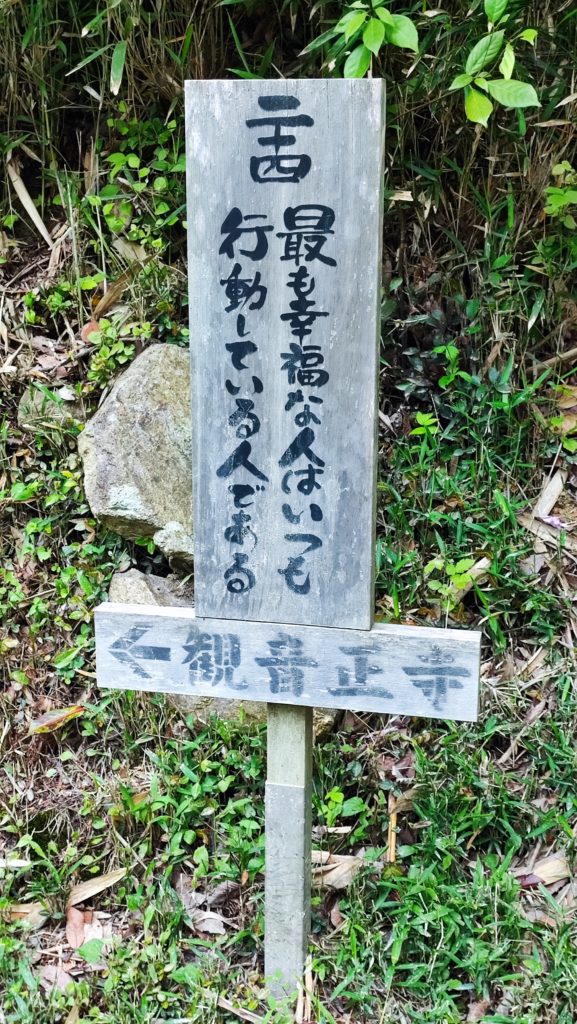 二十四
最も幸福な人はいつも
行動している人である
←観音正寺